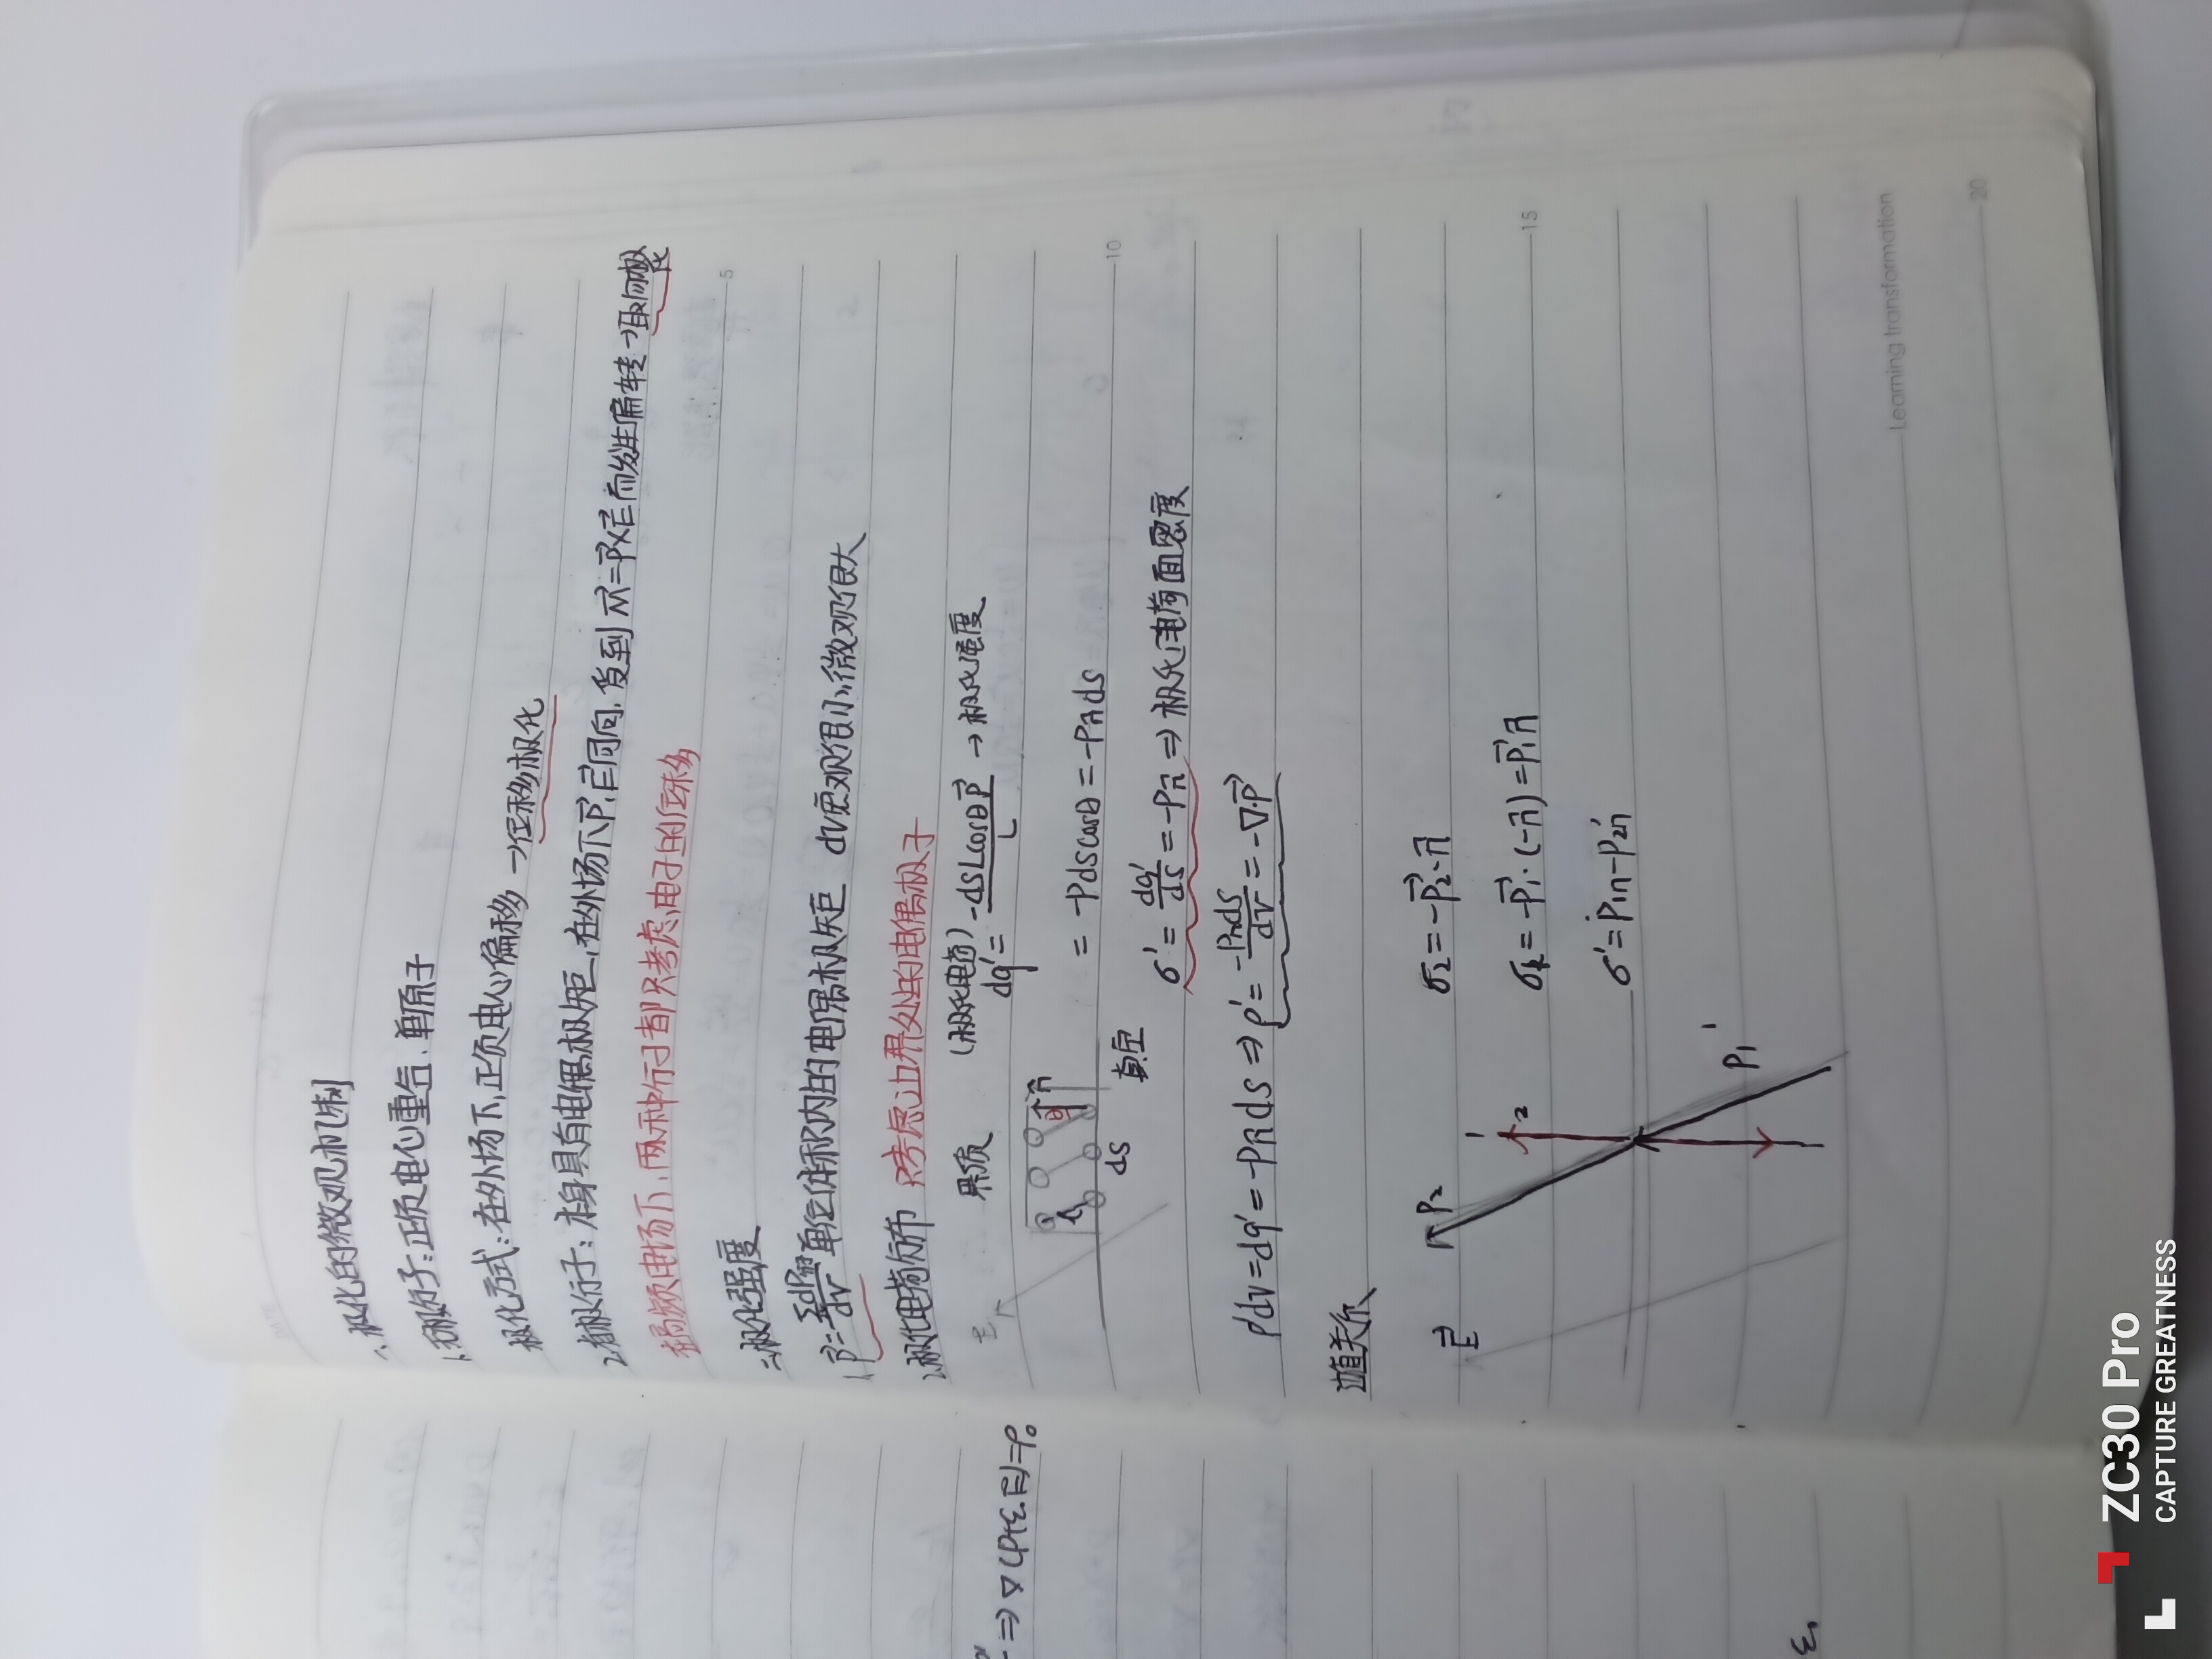 一、极化的微观机制
1.无极分子:正负电心重合.单原子
极化方式:在外场下,正负电心偏移→位移极化
2.有极分子:本身具有电偶极矩,在外场下P,E同向,受到M⃗=P⃗×E⃗而发生偏转→取向极化
在高频电场下,两种分子都只考虑电子的位移
二.极化强度
1.P⃗=ΣdP分/dV 单位体积内的电偶极矩 dV宏观很小,微观很大
2.极化电荷分布 只考虑边界处的电偶极子
界质 (极化电荷) dq'=-dSLcosθP⃗→极化强度
E L θ n⃗
dS =-PdScosθ=-PndS
真空 σ'=dq'/dS=-Pn⃗⇒极化电荷面密度
ρdV=dq'=-PndS⇒ρ'=-PndS/dV=-∇·P⃗
边值关系
E⃗ P₂ 2 σ₂=-P⃗₂·n⃗
σ₁=-P⃗₁·(-n⃗)=P⃗₁n⃗
P₁ 1 σ'=P₁n-P₂n
⇒∇(P+ε₀E)=ρ₀
ε₁
5
10
15
20
Learning transformation
ZC30 Pro
CAPTURE GREATNESS